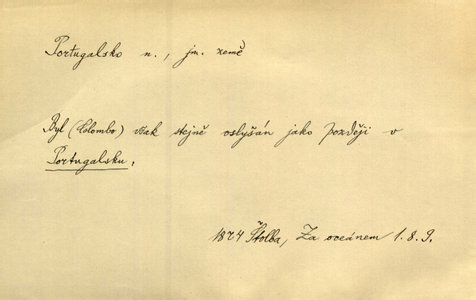 Portugalsko n., jm. země
Byl (Colombo) však stejně oslyšán jako později v
Portugalsku,
1874 Štolba, Za oceánem 1.8.9.